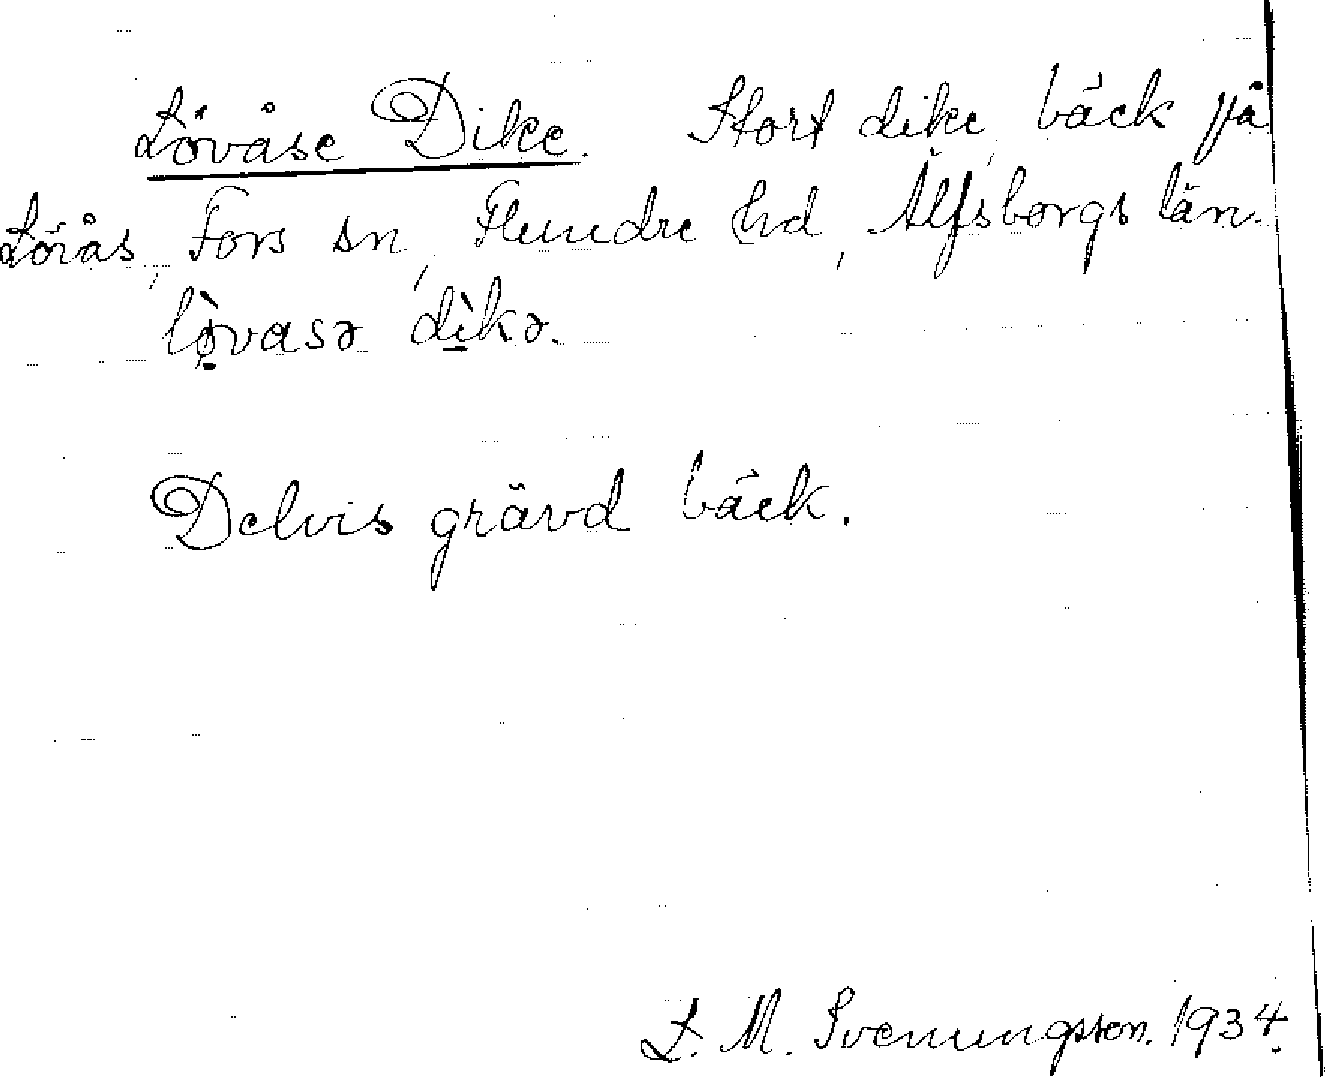 Lövåse Dike. Stort dike, bäck på
Lövås, Fors sn, Flundre hd, Älfsborgs län.
lö̀vasə dìkə.
Delvis grävd bäck.
L. M. Svenungsson. 1934.